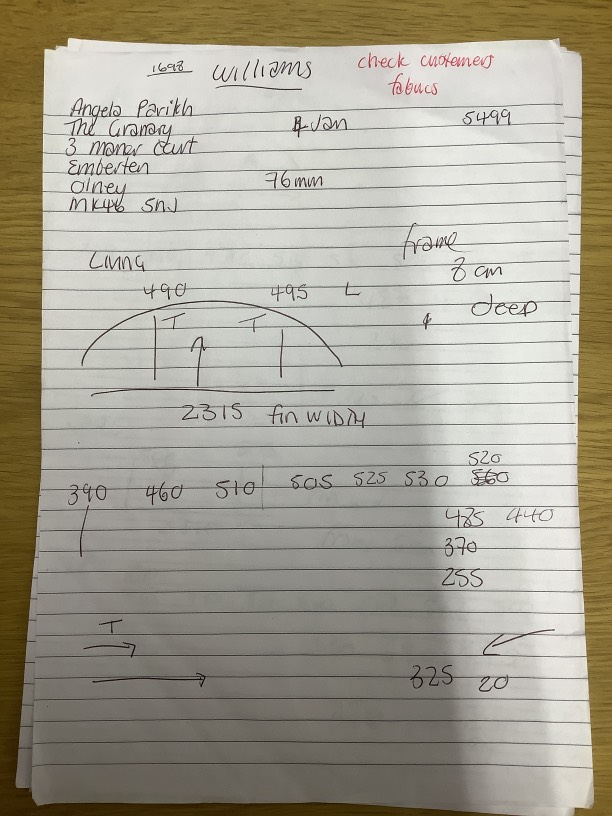 1698 Williams check customers
fabucs
Angela Parikh
The Granary 4 Jan 5499
3 maner Court
Emberten
Olney 76mm
MK46 5NJ
Living frame
8 cm
490 495 L deep
T T
2315 fin WIDTH
520
390 460 510 505 525 530 560
485 440
370
255
T
325 20